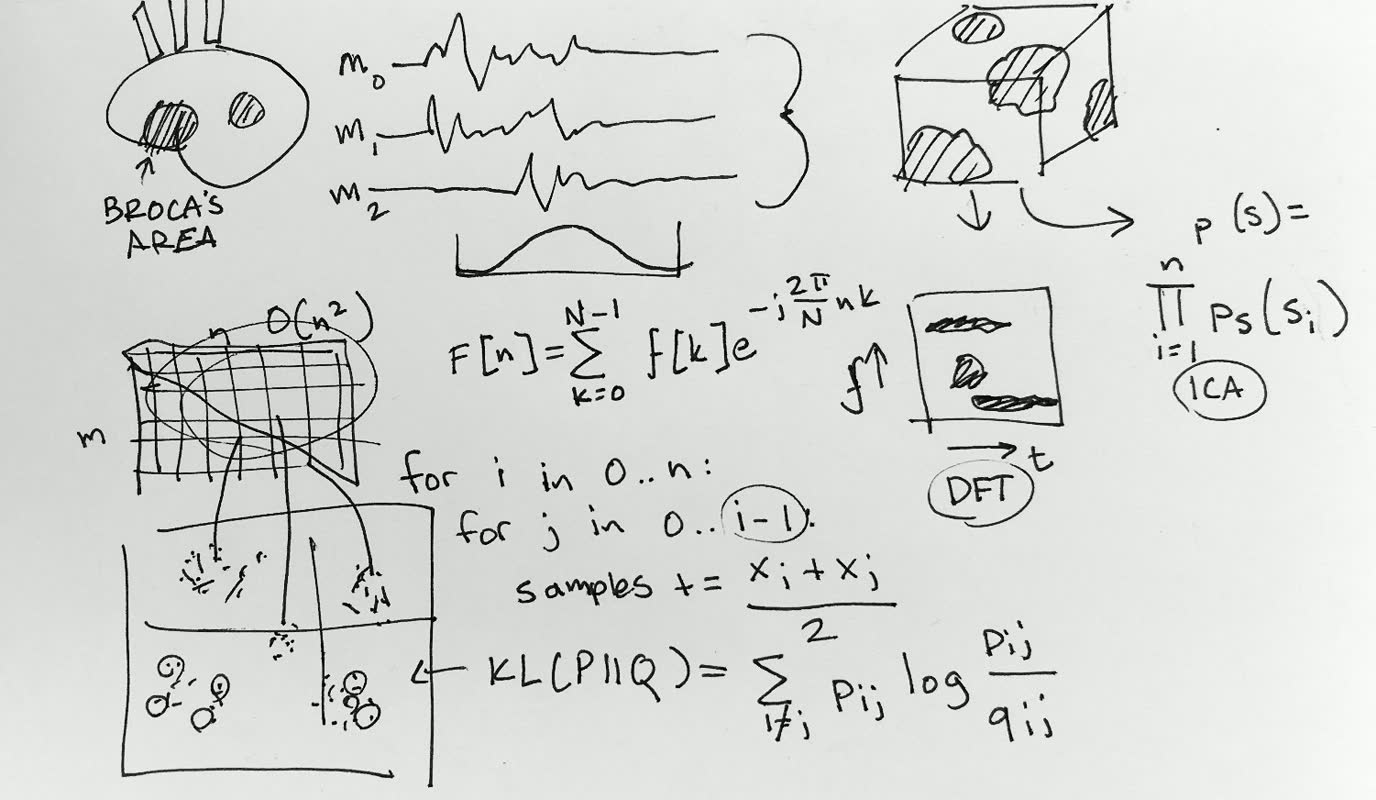 m₀
m₁
m₂
BROCA'S
AREA
p(s) =
∏ᵢ₌₁ⁿ pₛ(sᵢ)
ICA
n O(n²)
m
F[n] = ∑ₖ₌₀ᴺ⁻¹ f[k]e^(-j 2π/N nk)
f ↑
→ t
DFT
for i in 0..n:
for j in 0..i-1:
samples += (xᵢ + xⱼ)/2
← KL(P||Q) = ∑ᵢ≠ⱼ pᵢⱼ log pᵢⱼ/qᵢⱼ